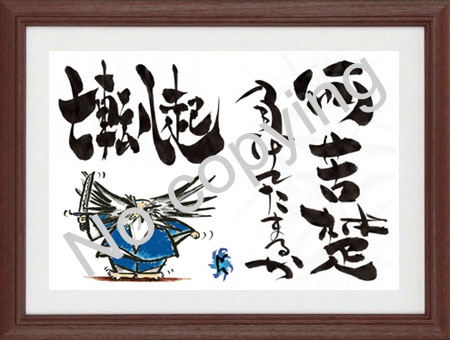 何苦楚
負けてたまるか
七転八起
No copying